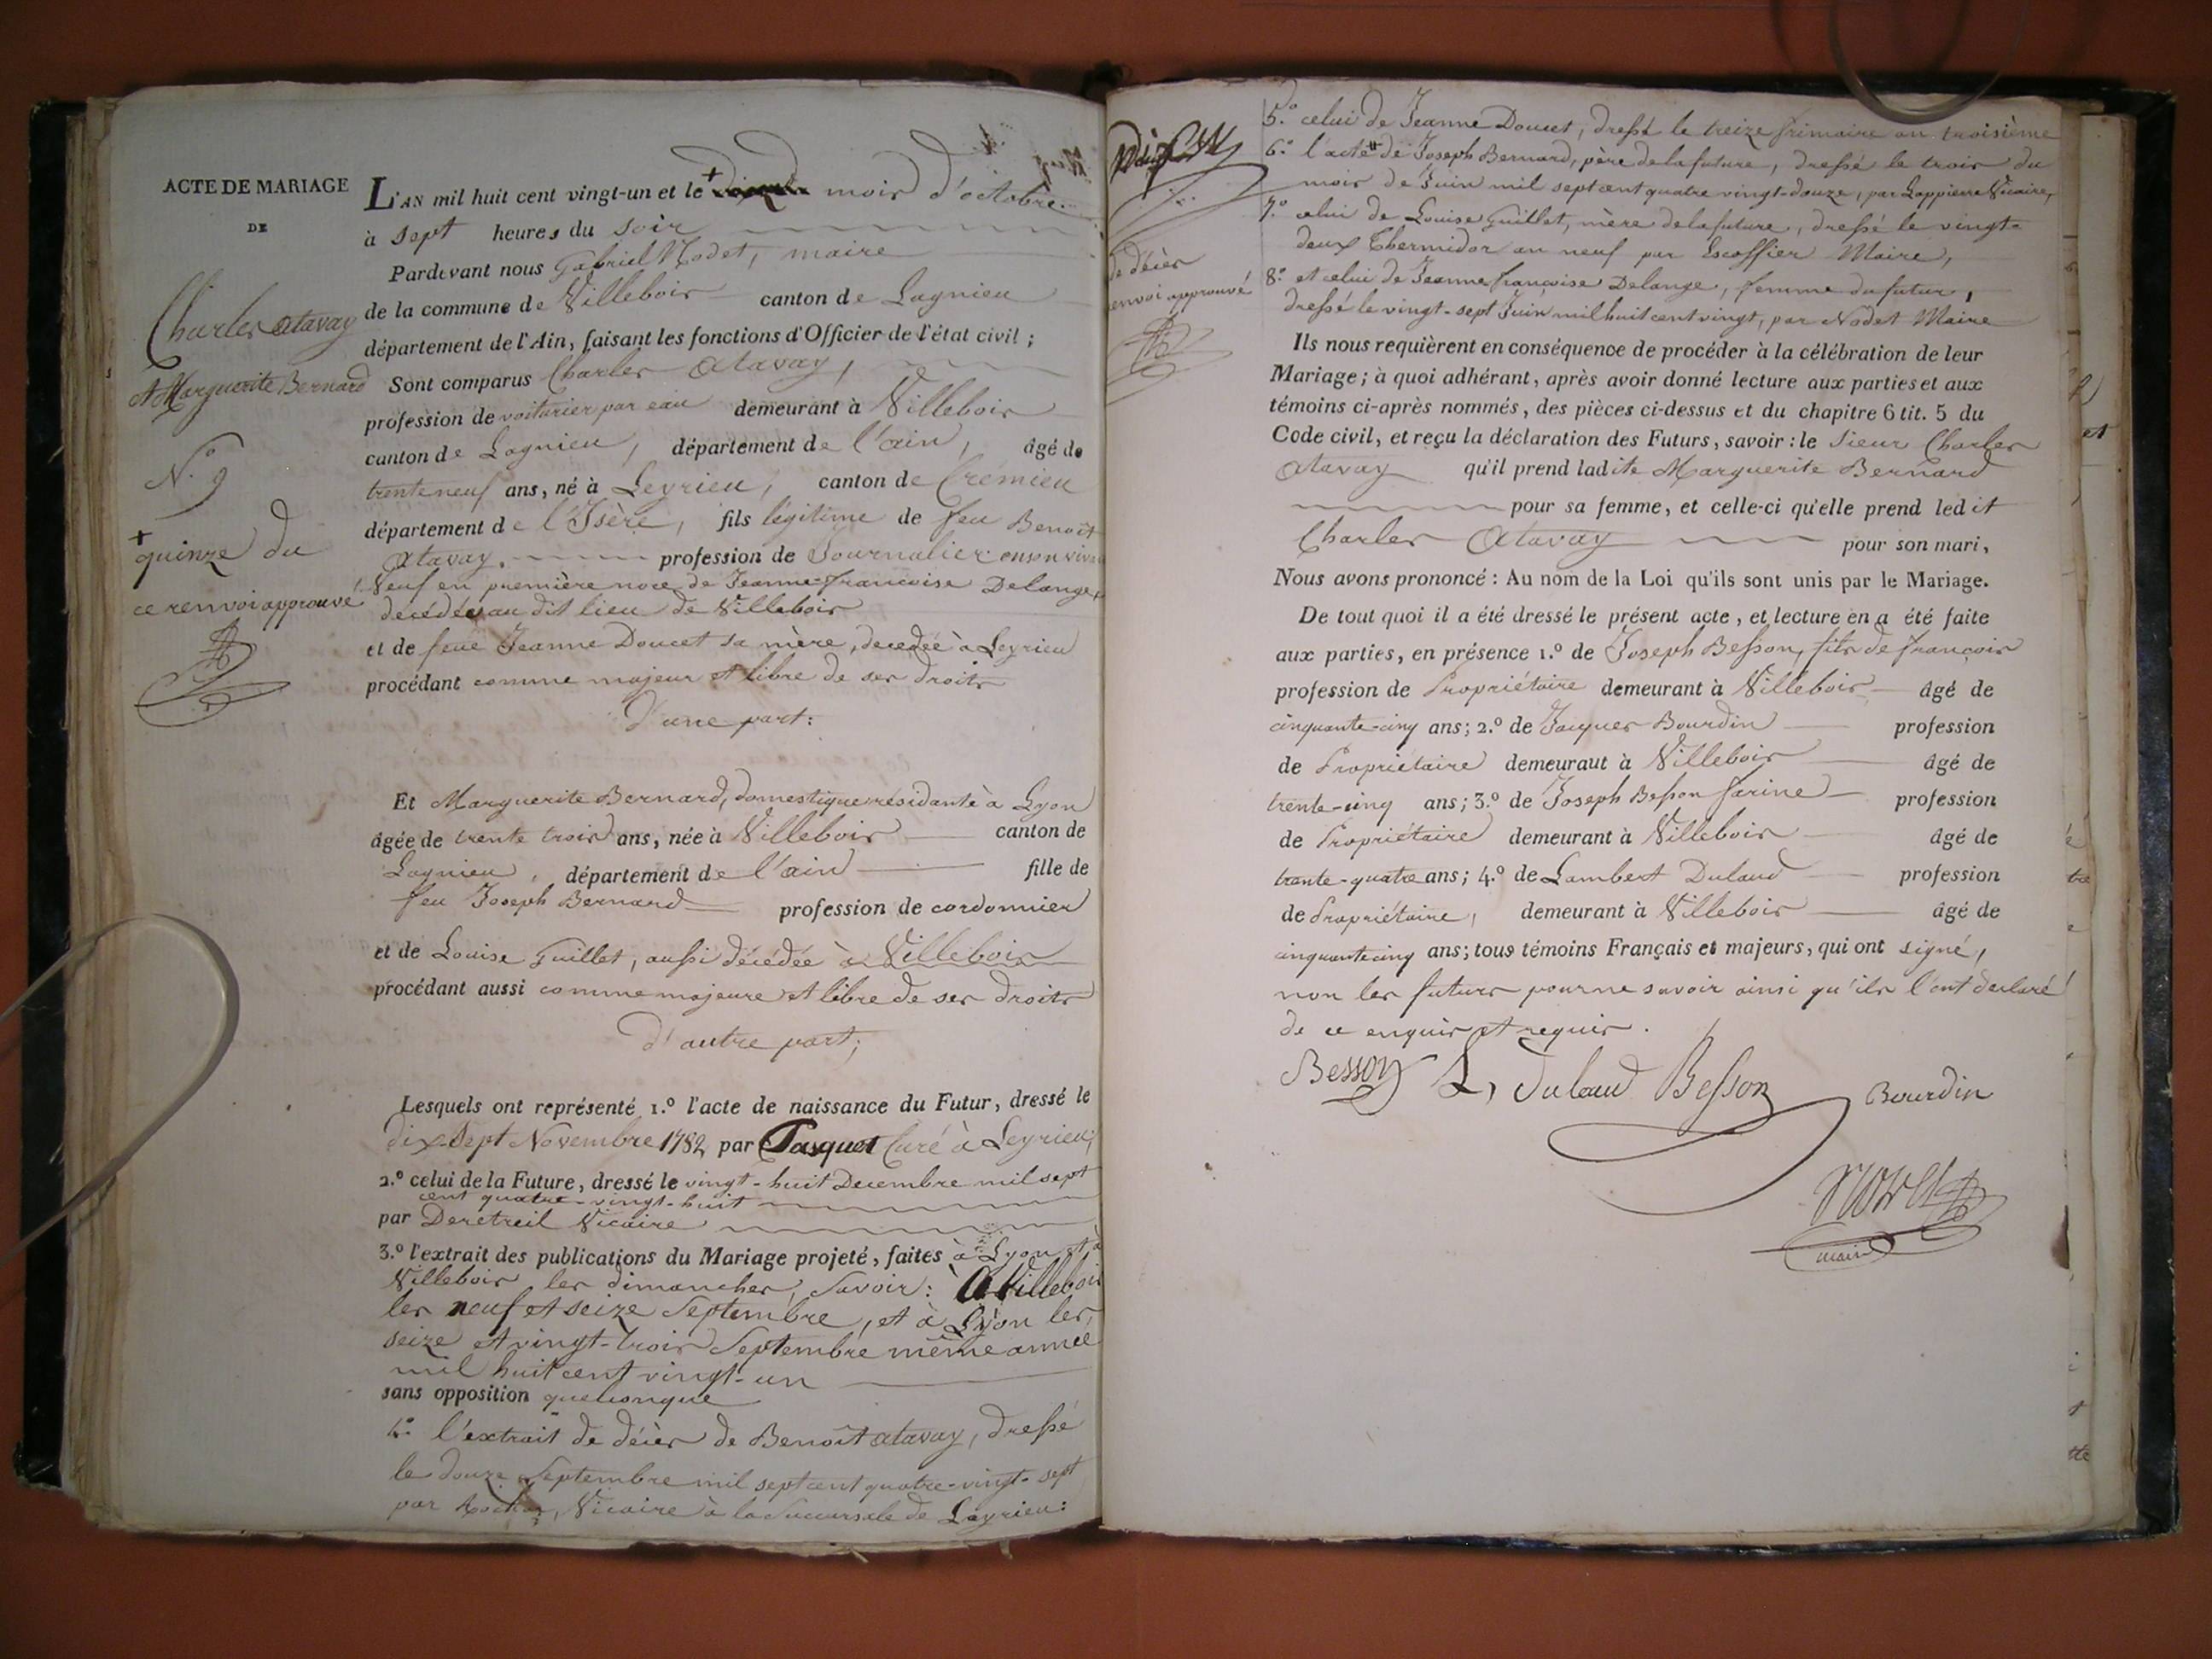 ACTE DE MARIAGE
DE
Charles Atavay
et Marguerite Bernard
N.º 9
+
quinze du
ce renvoi approuvé
L'AN mil huit cent vingt-un et le + mois d'octobre
à sept heures du soir
Pardevant nous Gabriel Nodet, maire
de la commune de Villebois canton de Lagnieu
département de l'Ain, faisant les fonctions d'Officier de l'état civil ;
Sont comparus Charles Atavay,
profession de voiturier par eau demeurant à Villebois
canton de Lagnieu, département de l'ain, âgé de
trente neuf ans, né à Leyrieu, canton de Crémieu
département de l'Isère, fils légitime de feu Benoît
Atavay. profession de Journalier en son viva
Veuf en première noce de Jeanne-françoise Delange,
décédée au dit lieu de Villebois
et de feue Jeanne Doucet sa mère, décédée à Leyrieu
procédant comme majeur et libre de ses droits
D'une part:
Et Marguerite Bernard, domestique résidante à Lyon
âgée de trente trois ans, née à Villebois canton de
Lagnieu, département de l'ain fille de
feu Joseph Bernard profession de cordonnier
et de Louise Guillet, aussi décédée à Villebois
procédant aussi comme majeure et libre de ses droits
d'autre part;
Lesquels ont représenté 1.º l'acte de naissance du Futur, dressé le
dix-sept Novembre 1782 par Pasquet Curé à Leyrieu;
2.º celui de la Future, dressé le vingt-huit Decembre mil sept
cent quatre-vingt-huit
par Deretreil Vicaire
3.º l'extrait des publications du Mariage projeté, faites à Lyon et à
Villebois, les dimanches, Savoir: A Villebois
les neuf et seize Septembre, et à Lyon les
seize et vingt-trois Septembre même année
mil huit cent vingt-un
sans opposition quelconque
4.º l'extrait de décès de Benoît Atavay, dressé
le douze Septembre mil sept cent quatre-vingt-sept
par Vicaire à la Succursale de Leyrieu:
de décès
renvoi approuvé
5.º celui de Jeanne Doucet, dressé le treize frimaire an troisième
6.º l'acte # de Joseph Bernard, père de la future, dressé le trois du
mois de Juin mil sept cent quatre vingt-douze, par Lappierre Vicaire,
7.º celui de Louise Guillet, mère de la future, dressé le vingt-
deux Thermidor an neuf par Escoffier Maire,
8.º et celui de Jeanne françoise Delange, femme du futur,
dressé le vingt-sept Juin mil huit cent vingt, par Nodet Maire
Ils nous requièrent en conséquence de procéder à la célébration de leur
Mariage ; à quoi adhérant, après avoir donné lecture aux parties et aux
témoins ci-après nommés, des pièces ci-dessus et du chapitre 6 tit. 5 du
Code civil, et reçu la déclaration des Futurs, savoir : le Sieur Charles
Atavay qu'il prend ladite Marguerite Bernard
pour sa femme, et celle-ci qu'elle prend ledit
Charles Atavay pour son mari,
Nous avons prononcé : Au nom de la Loi qu'ils sont unis par le Mariage.
De tout quoi il a été dressé le présent acte, et lecture en a été faite
aux parties, en présence 1.º de Joseph Besson, fils de françois
profession de Propriétaire demeurant à Villebois âgé de
cinquante-cinq ans ; 2.º de Jacques Bourdin profession
de Propriétaire demeuraut à Villebois âgé de
trente-cinq ans ; 3.º de Joseph Besson farine profession
de Propriétaire demeurant à Villebois âgé de
trente-quatre ans ; 4.º de Lambert Dulaud profession
de Propriétaire, demeurant à Villebois âgé de
cinquante cinq ans ; tous témoins Français et majeurs, qui ont signé,
non les futurs pour ne savoir ainsi qu'ils l'ont declaré
de ce enquis et requis.
Besson L, Dulaud Besson Bourdin
Nodet
maire